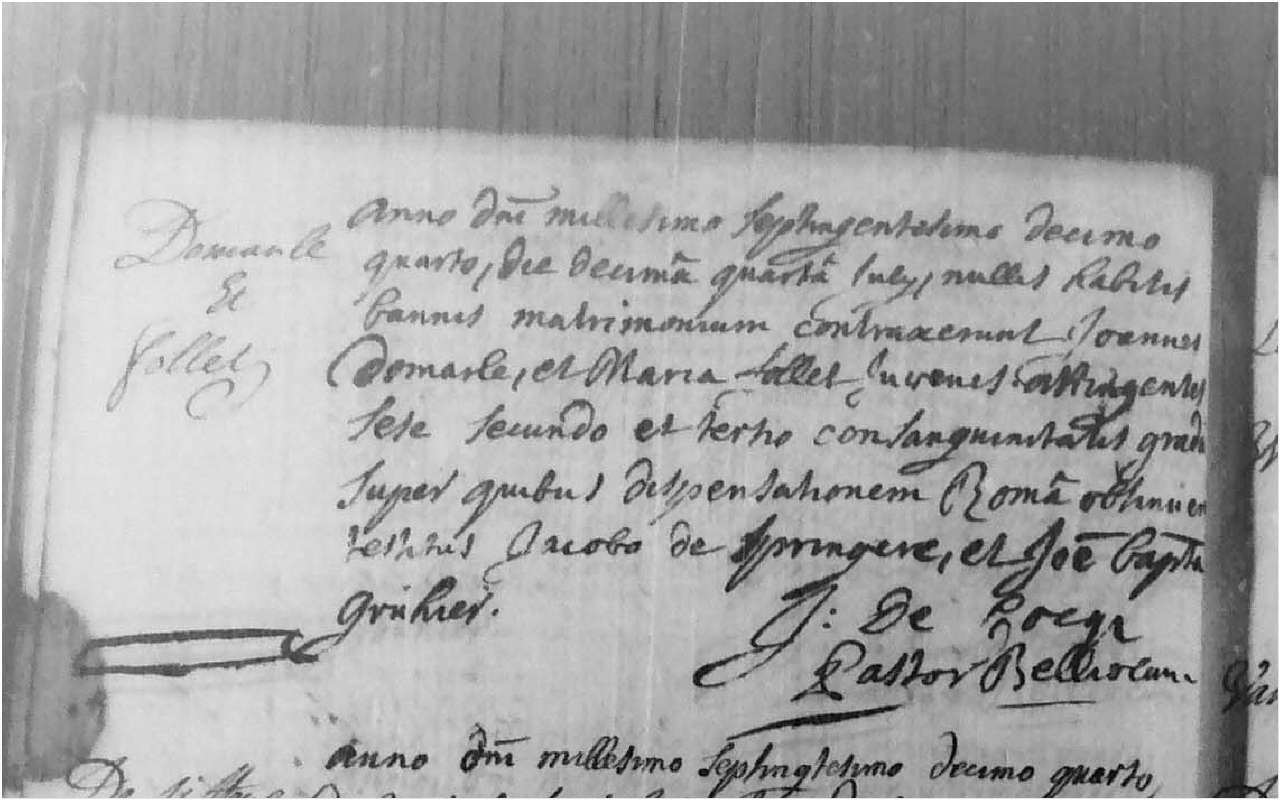 Domarle
Et
follet
anno dni millesimo septingentesimo decimo
quarto, die decimā quartā July, nullis habitis
bannis matrimonium contraxerunt Joannes
Domarle, et Maria follet Juvenes attingentes
sese secundo et tertio consanguinitatis gradu
super quibus dispensationem Romā obtinuer
testibus Jacobo de springere, et Joē bapta
gruhier.
J: De
Pastor
anno dni millesimo septingtesimo decimo quarto,